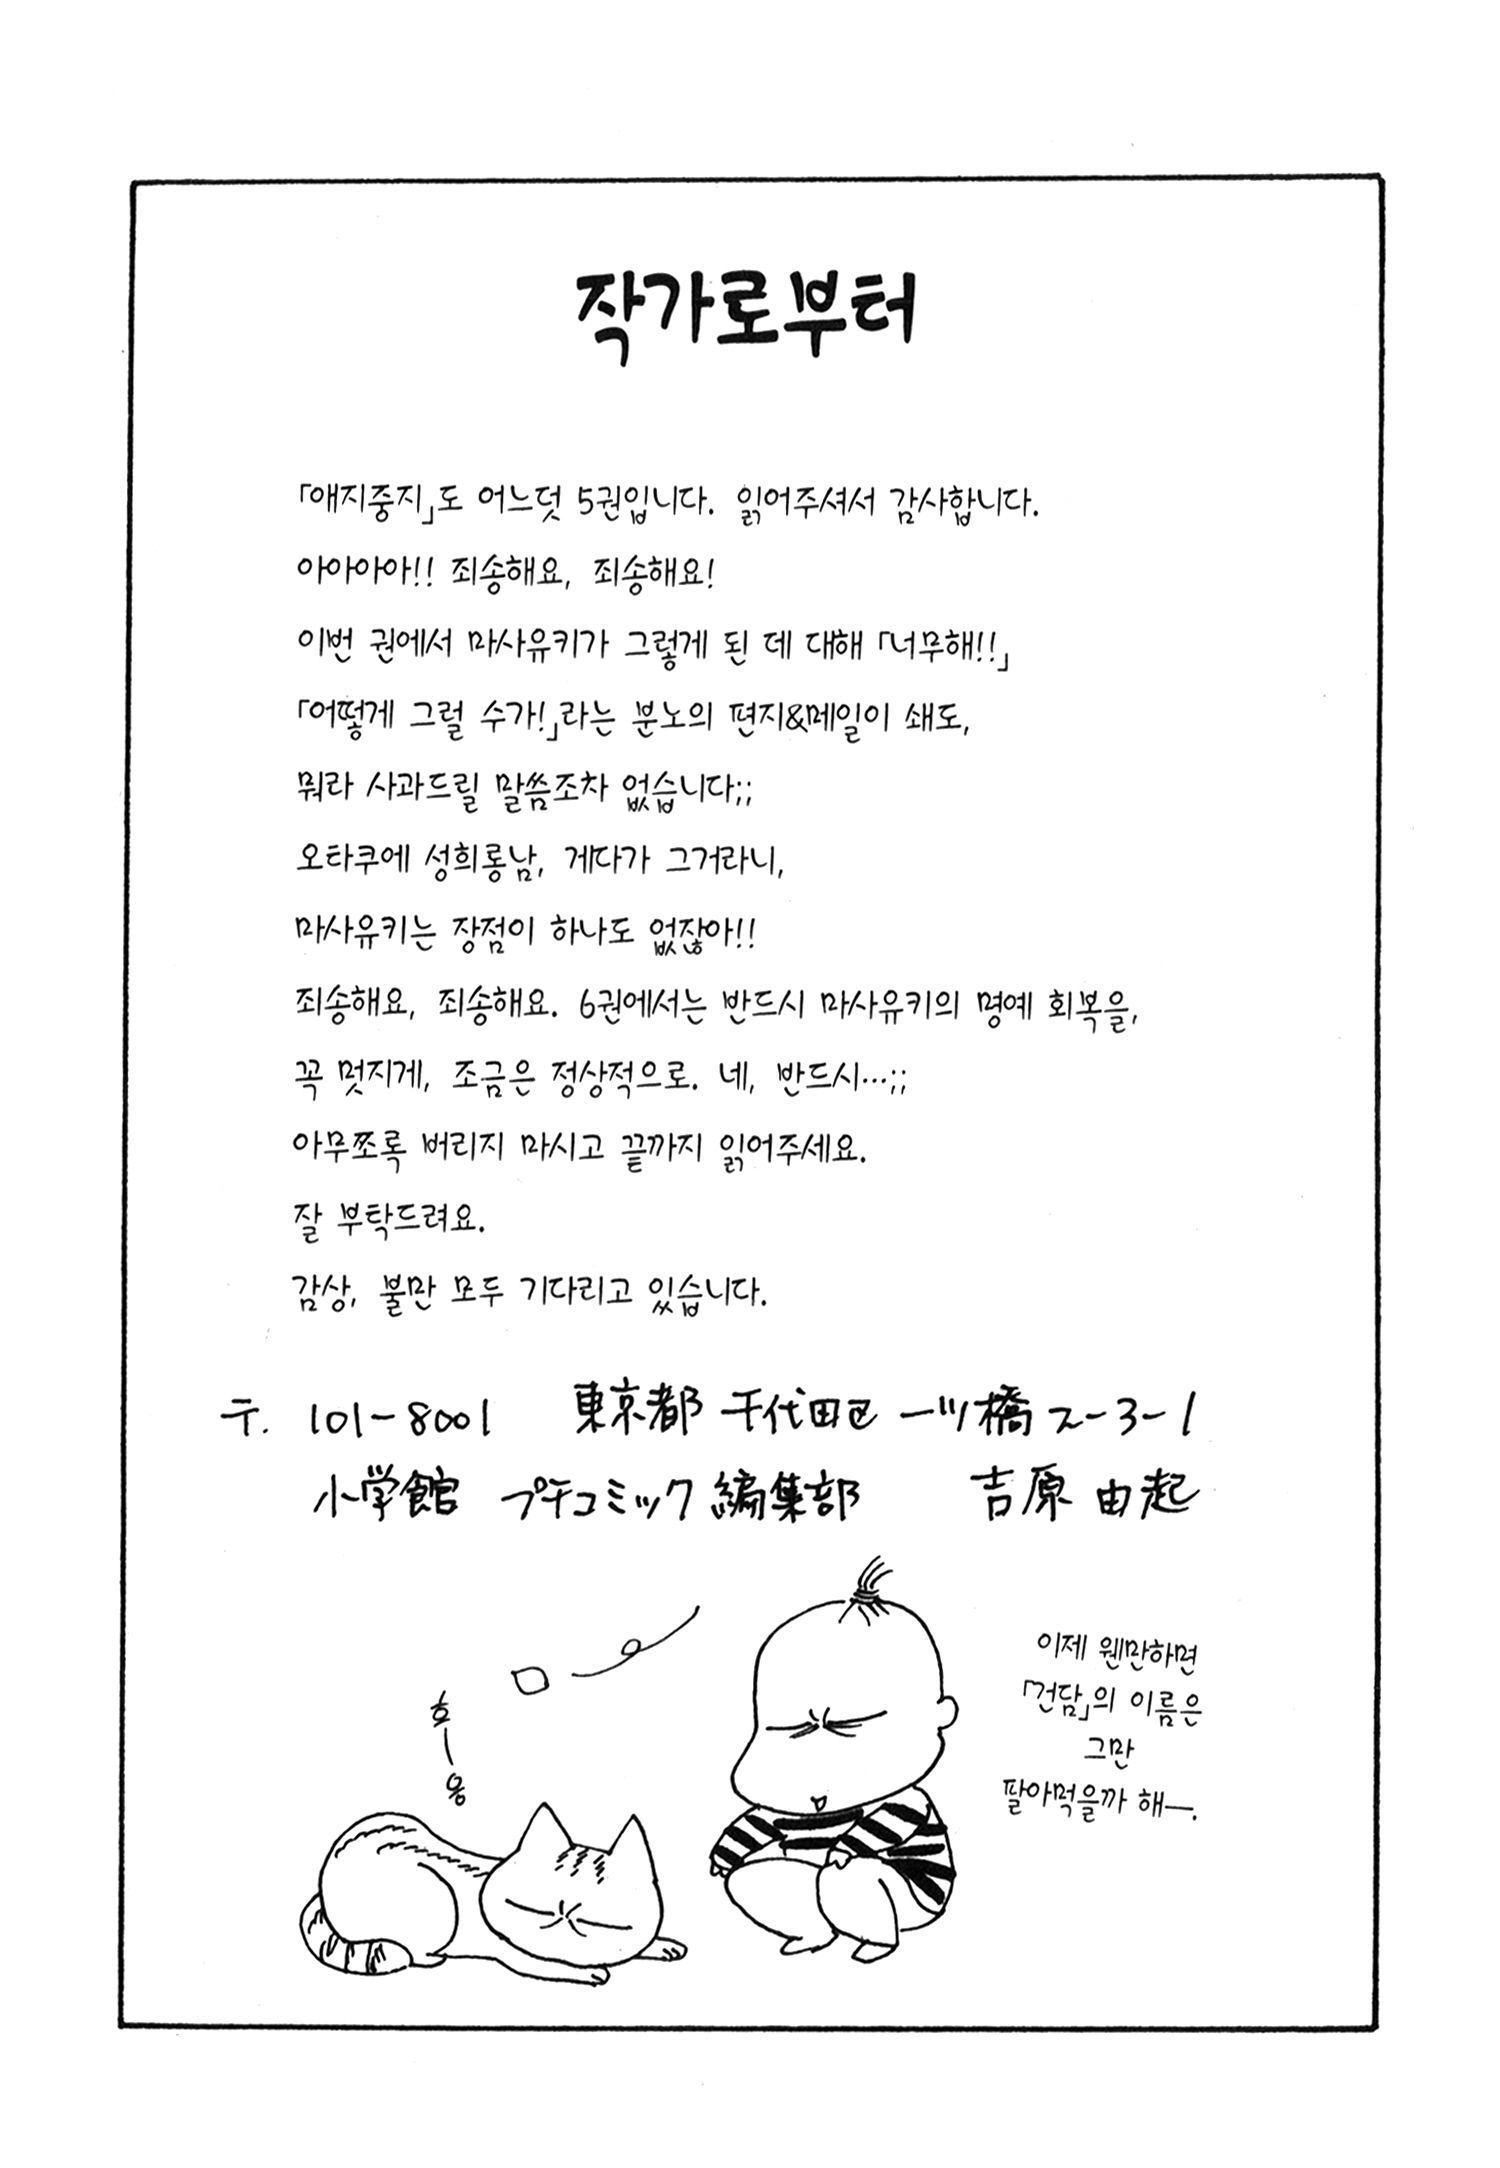 작가로부터
「애지중지」도 어느덧 5권입니다. 읽어주셔서 감사합니다.
아아아아!! 죄송해요, 죄송해요!
이번 권에서 마사유키가 그렇게 된 데 대해 「너무해!!」
「어떻게 그럴 수가!」라는 분노의 편지&메일이 쇄도,
뭐라 사과드릴 말씀조차 없습니다;;
오타쿠에 성희롱남, 게다가 그거라니,
마사유키는 장점이 하나도 없잖아!!
죄송해요, 죄송해요. 6권에서는 반드시 마사유키의 명예 회복을,
꼭 멋지게, 조금은 정상적으로. 네, 반드시…;;
아무쪼록 버리지 마시고 끝까지 읽어주세요.
잘 부탁드려요.
감상, 불만 모두 기다리고 있습니다.
〒. 101-8001 東京都 千代田区 一ツ橋 2-3-1
小学館 プチコミック 編集部 吉原 由起
이제 웬만하면
「건담」의 이름은
그만
팔아먹을까 해—.
흐—응